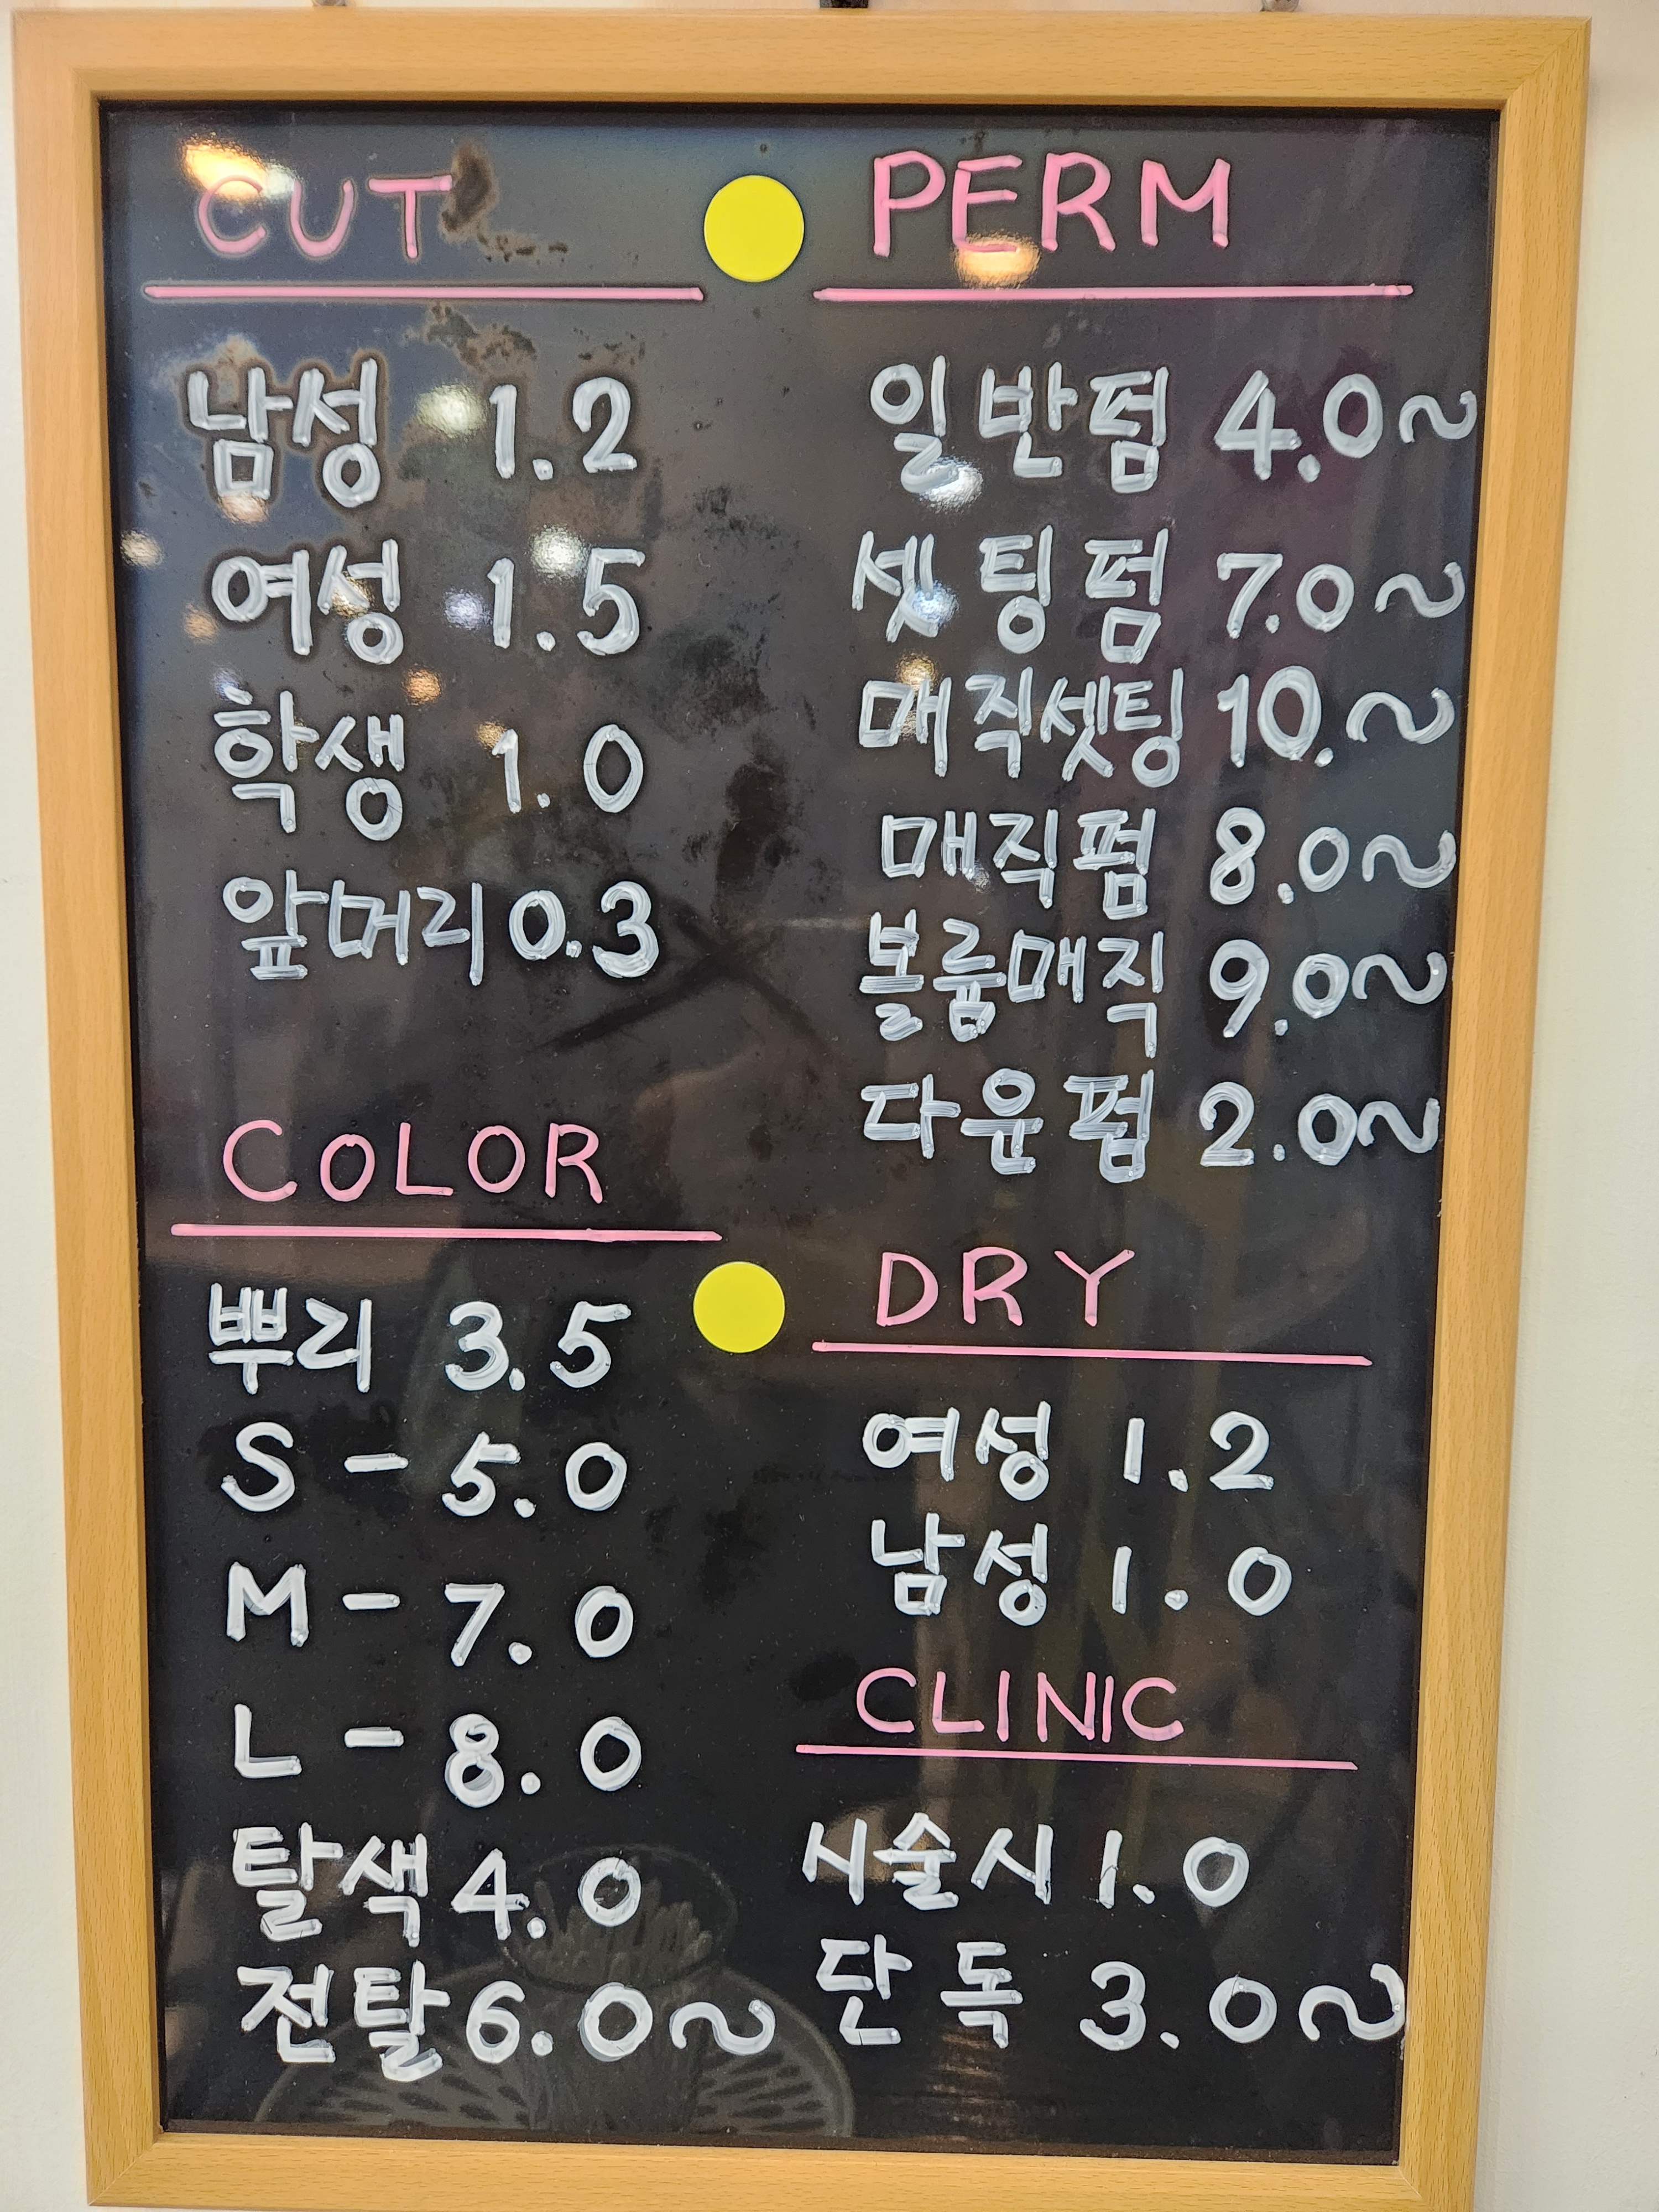 CUT
남성 1.2
여성 1.5
학생 1.0
앞머리 0.3
COLOR
뿌리 3.5
S - 5.0
M - 7.0
L - 8.0
탈색 4.0
전탈 6.0~
PERM
일반펌 4.0~
셋팅펌 7.0~
매직셋팅 10.~
매직펌 8.0~
볼륨매직 9.0~
다운펌 2.0~
DRY
여성 1.2
남성 1.0
CLINIC
시술시 1.0
단독 3.0~